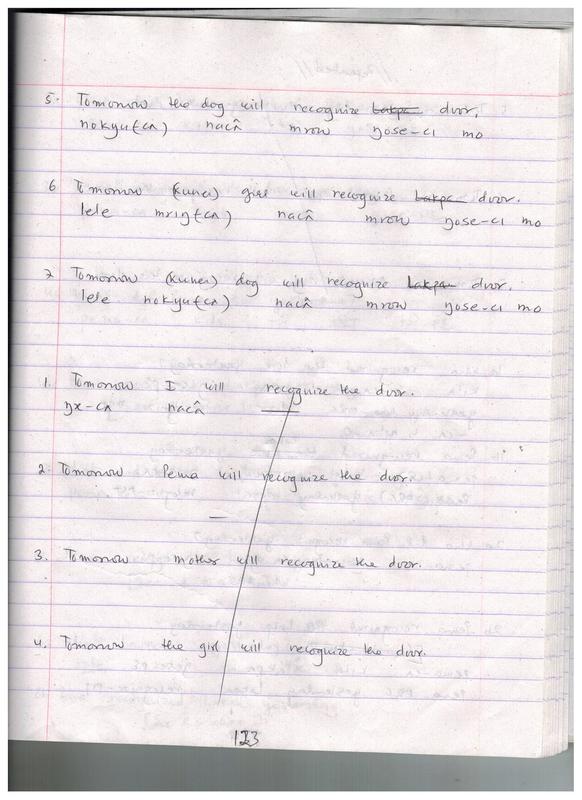 5. Tomorrow the dog will recognize Lakpa door.
nokyu(cʌ) nacʌ̂ mrow ŋose-cɪ mo
6 Tomorrow (Kunci) girl will recognize Lakpa door.
lele mrɪŋ(cʌ) nacʌ̂ mrow ŋose-cɪ mo
7 Tomorrow dog will recognize Lakpa door.
lele nokyu(cʌ) nacʌ̂ mrow ŋose-cɪ mo
1. Tomorrow I will recognize the door.
ŋx-cʌ nacʌ̂
2. Tomorrow Pema will recognize the door.
3. Tomorrow mother will recognize the door.
4. Tomorrow the girl will recognize the door.
123